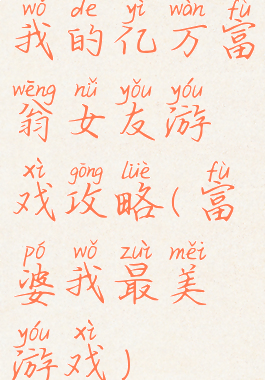 wǒ de yì wàn fù
我的亿万富
wēng nǚ yǒu yóu
翁女友游
xì gōng lüè fù
戏攻略(富
pó wǒ zuì měi
婆我最美
yóu xì
游戏)